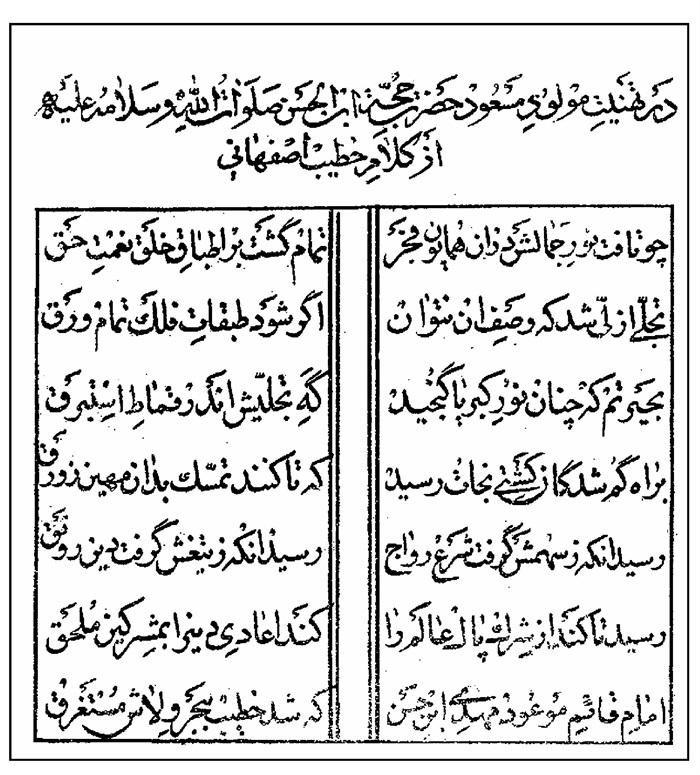 در تهنیت مولودی مسعود حضرت حجة ابن الحسن صلوات الله و سلامه علیه
از کلام خطیب اصفهانی
چو تافت نور جمالش در آن همایون فجر تمام گشت بر اطباق خلق نعمت حق
تجلّی ازلی شد که وصف آن نتوان اگر شود طبقات فلک تمام ورق
بحیرتم که چنان نور کبریا گنجید گه تجلیّش اندر قماط استبرق
براه گم شدگان کشتی نجات رسید که تا کنند تمسّک بدان مهین زورق
رسید آنکه ز سهمش گرفت شرع رواج رسید آنکه ز تیغش گرفت دین رونق
رسید تا کند از شرک پاک عالم را کند اعادی دین را بمشرکین ملحق
امام قائم موعود مهدی ابن حسن که شد خطیب ببحر ولاش مستغرق